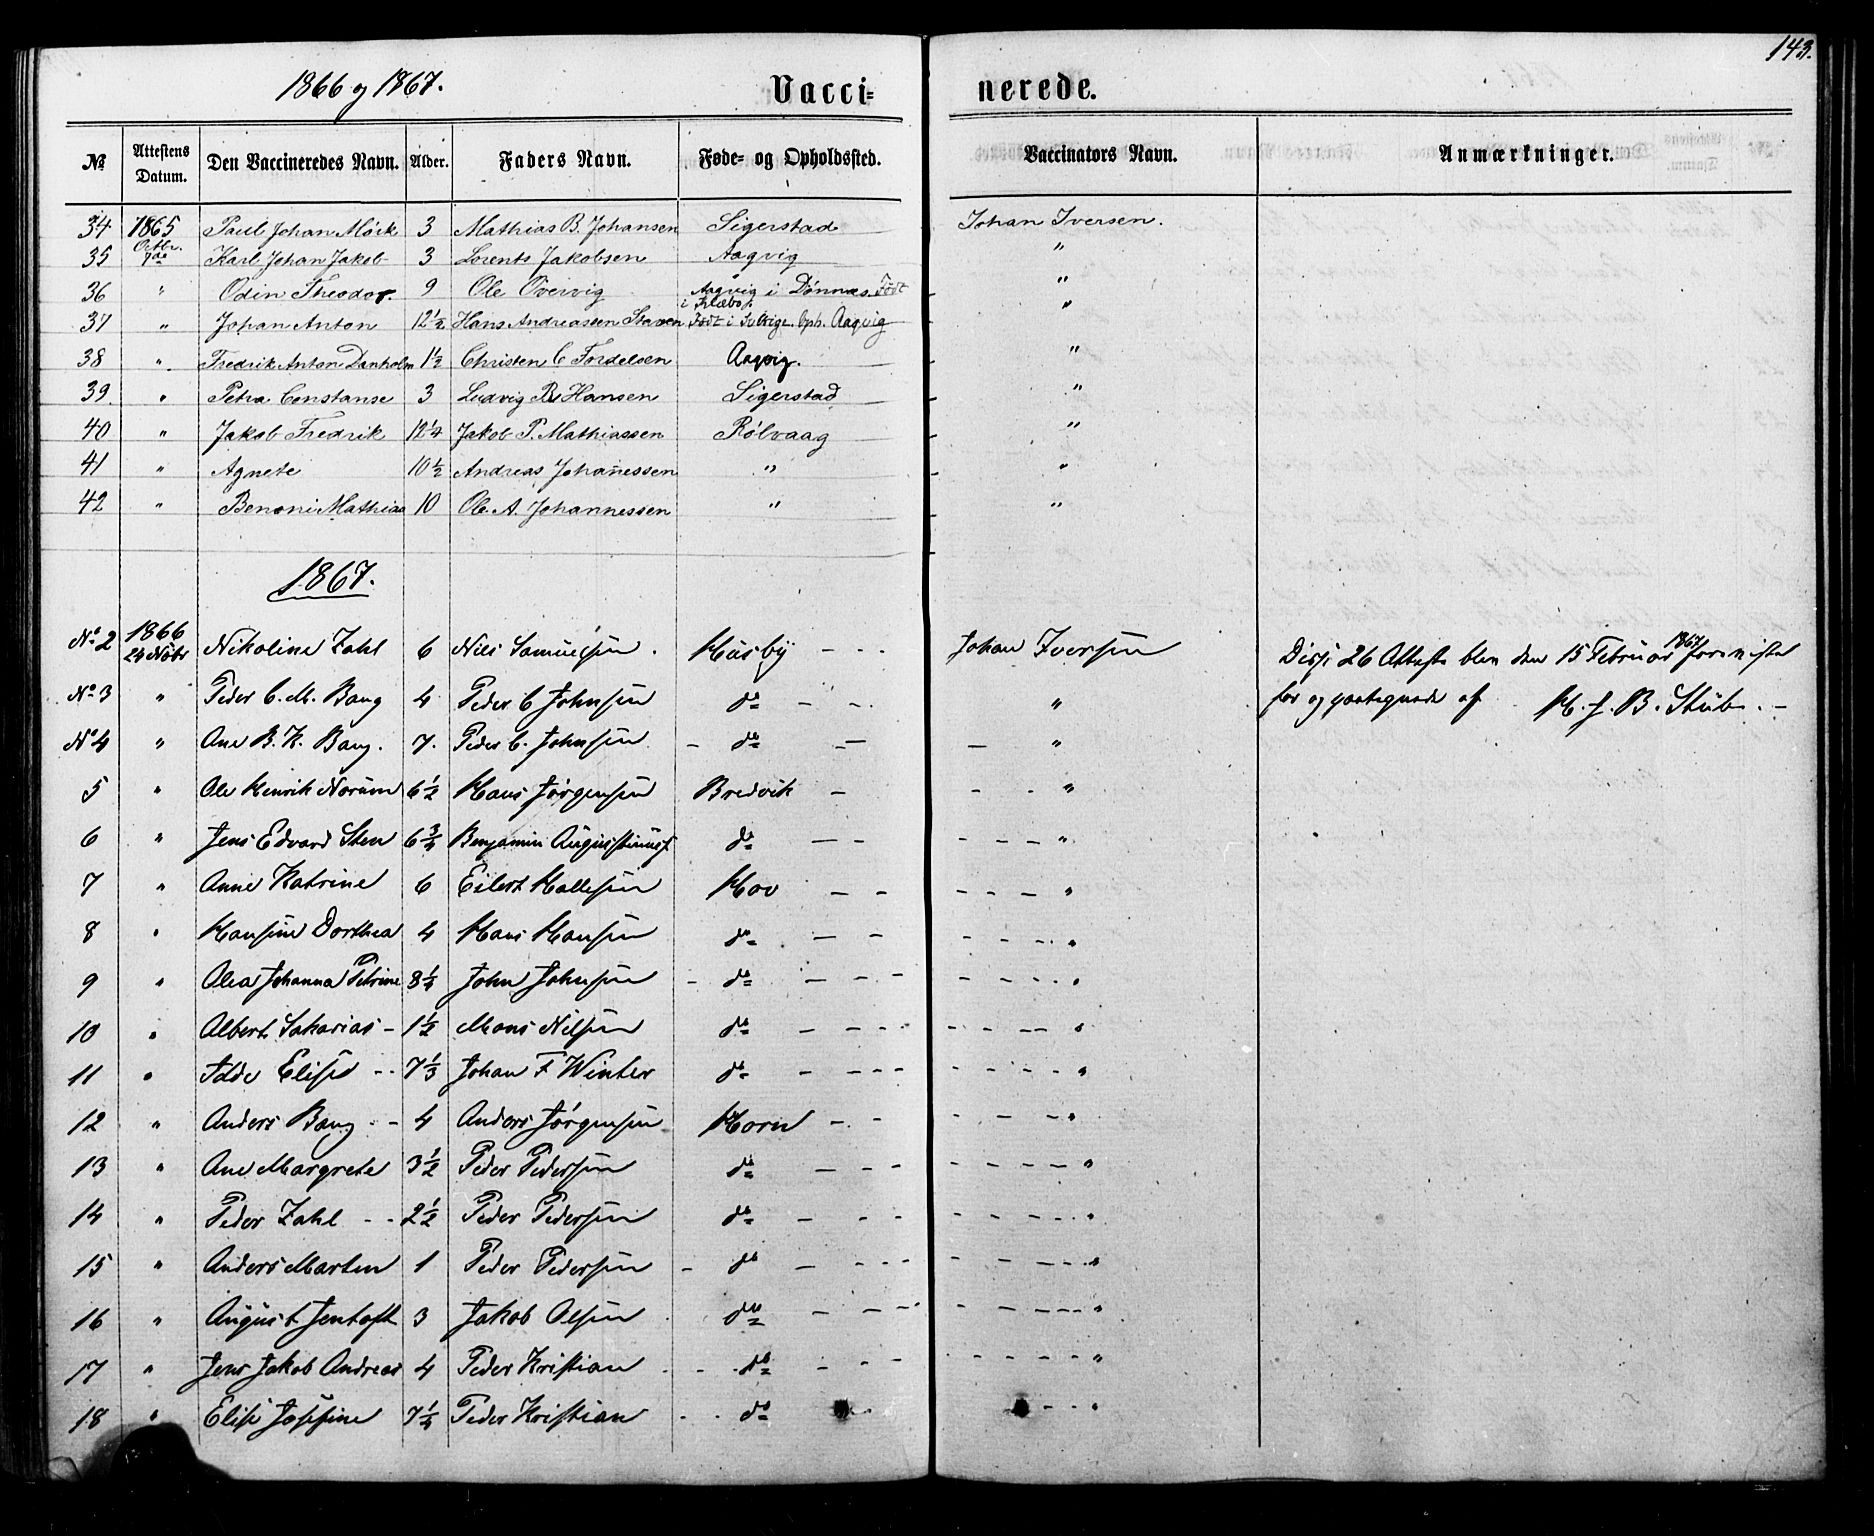 143.
1866 og 1867. Vacci= nerede.
No Attestens Datum. Den Vaccineredes Navn. Alder. Faders Navn. Føde= og Opholdssted. Vaccinators Navn. Anmærkninger.
34 1865 Paul Johan Mörk 3 Mathias B. Johansen Sigerstad Johan Iversen.
35 Octbr. 7de Karl Johan Jakob 3 Lorents Jakobsen Aagvig "
36 " Odin Theodor. 9 Ole Övervig Aagvig i Dönnæs. Födt i Klæbo. "
37 " Johan Anton 12 1/2 Hans Andreassen Födt i Opb. Aagvig "
38 " Fredrik Anton Danholm 1 1/2 Christen C Aagvig. "
39 " Petra Constanse 3 Ludvig Hansen Sigerstad "
40 " Jakob Fredrik 12 1/4 Jakob P. Mathiassen Rölvaag "
41 " Agnete 10 1/2 Andreas Johañessen " "
42 " Benoni Mathias 10 Ole A. Johannessen " "
1867.
No 2 1866 24 Nobr Nikoline Zahl 6 Nils Samuelsen. Husby - - - Johan Iversen Disse 26 Attester blev den 15 Februar 1867 foreviste
No 3 " Peder C. M. Bang 4 Peder C Johnsen do - - " for og paategnede af H. J. B. Stub. -
No 4 " Ane B. K. Bang. 7. Peder C. Johnsen - do - - "
5 " Ole Henrik Norum 6 1/2 Hans Jørgensen Bredvik - - - "
6 " Jens Edvard Sten 6 3/4 Benjamin Augustinus. do - - - - - - "
7 " Anne Katrine 6 Eilert Hallesen Hov - - - - - "
8 " Hansine Dorthea 4 Hans Hansen do - - - - - - "
9 " Olea Johanna Petrine 8 1/4 John Johnsen - do - - - - - - - "
10 " Albert Sakarias - 1 1/2 Mons Nilsen do - - - - - - - - - "
11 " Elise - - 7 1/3 Johan F Winter do - - - - - - - - - "
12 " Anders Bang - - 4 Anders Jørgensen Horn - - - - - - "
13 " Ane Margrete 3 1/2 Peder Pedersen do - - - - - - - - "
14 " Peder Zahl - - 2 1/2 Peder Pedersen do - - - - - - - - "
15 " Anders Marten 1 Peder Pedersen - do - - - - - - - - - "
16 " August Jentoft 3 Jakob Olsen do - - - - - - - - - "
17 " Jens Jakob Andreas 4 Peder Kristian - - do - - - - - - - - "
18 " Elise Josefine 7 1/4 Peder Kristian - - do - - - "